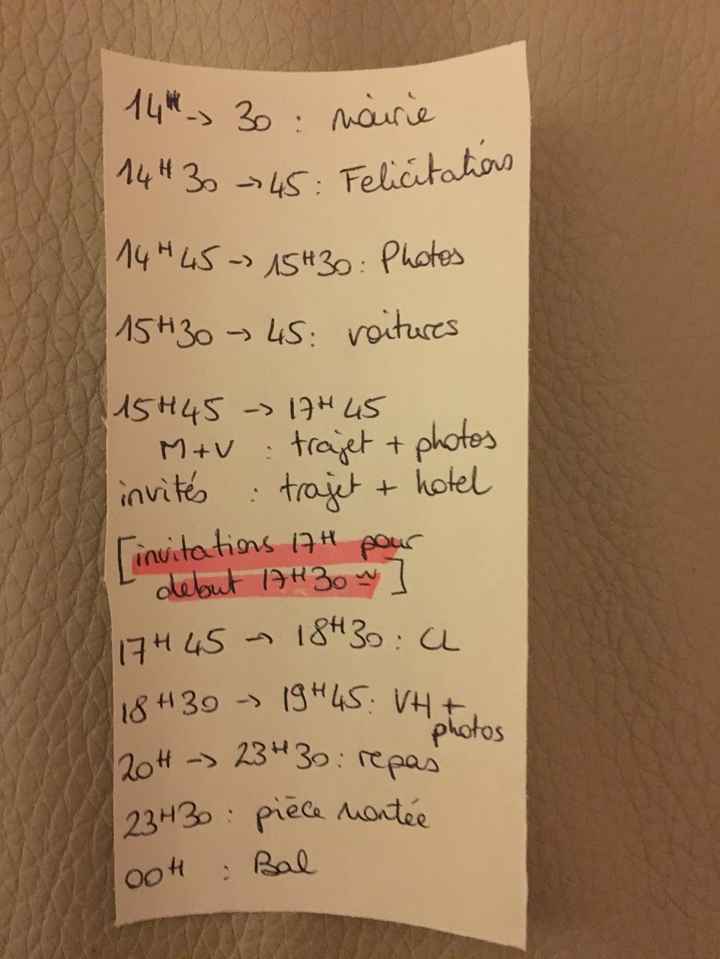 14H -> 30 : Mairie
14H30 -> 45 : Felicitations
14H45 -> 15H30 : Photos
15H30 -> 45 : voitures
15H45 -> 17H45
M+V : trajet + photos
invités : trajet + hotel
[invitations 17H pour
debut 17H30 ~]
17H45 -> 18H30 : CL
18H30 -> 19H45 : VH +
photos
20H -> 23H30 : repas
23H30 : pièce montée
00H : Bal